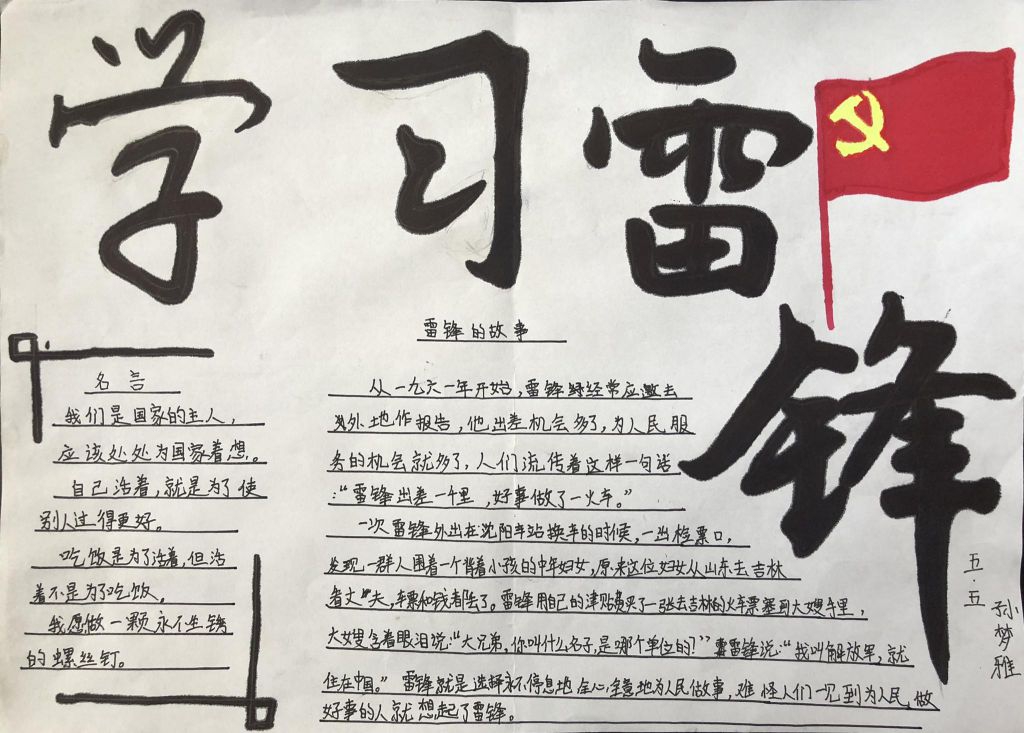 学习雷锋
名言
我们是国家的主人，
应该处处为国家着想。
自己活着，就是为了使
别人过得更好。
吃饭是为了活着，但活
着不是为了吃饭。
我愿做一颗永不生锈
的螺丝钉。
雷锋的故事
从一九六一年开始，雷锋经常应邀去
外地作报告，他出差机会多了，为人民服
务的机会就多了，人们流传着这样一句话
：“雷锋出差一千里，好事做了一火车。”
一次雷锋外出在沈阳车站换车的时候，一出检票口，
发现一群人围着一个背着小孩的中年妇女，原来这位妇女从山东去吉林
看丈夫，车票和钱都丢了。雷锋用自己的津贴费买了一张去吉林的火车票塞到大嫂手里，
大嫂含着眼泪说：“大兄弟，你叫什么名子，是哪个单位的？”雷锋说：“我叫解放军，就
住在中国。”雷锋就是选择永不停息地全心全意地为人民做事，难怪人们一见到为人民做
好事的人就想起了雷锋。
五·五
孙梦雅